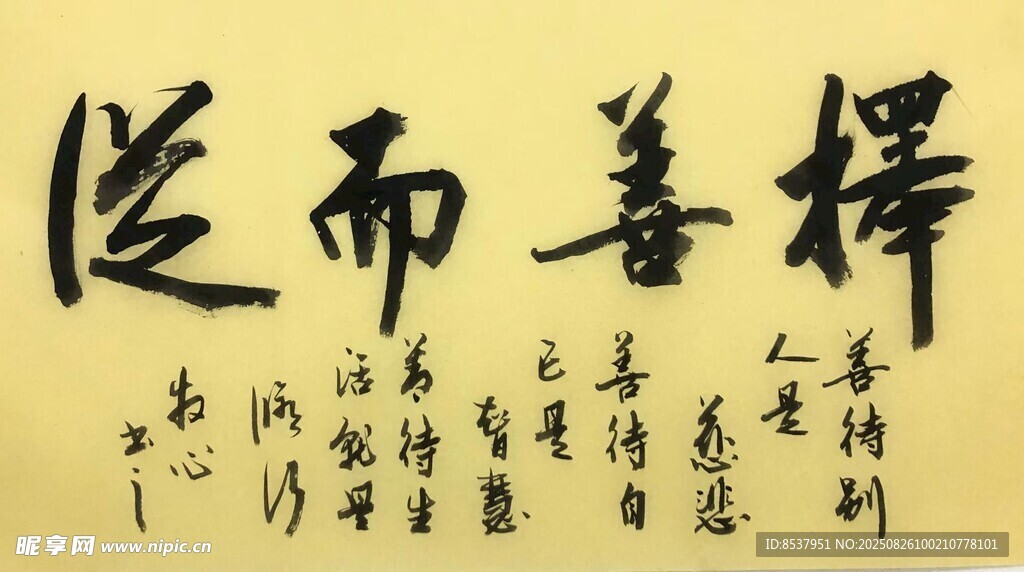 擇善而從
善待别
人是
慈悲
善待自
己是
智慧
善待生
活就是
修行
牧心
书之
昵享网 www.nipic.cn
ID:8537951 NO:20250826100210778101